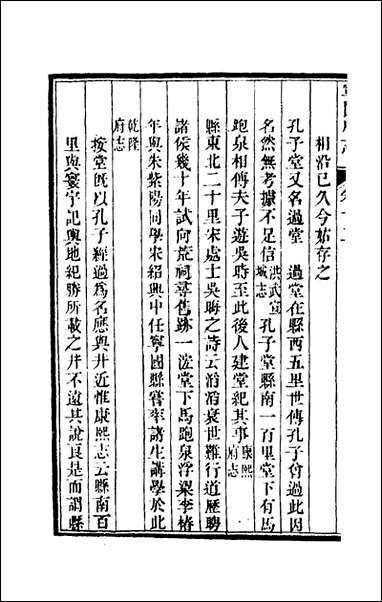 相沿已久今姑存之
孔子堂又名過堂　過堂在縣西五里世傳孔子曾過此因
名然無考據不足信洪武宣城志孔子堂縣南一百里堂下有馬
跑泉相傳夫子遊吳時至此後人建堂紀其事康熙府志
縣東北二十里宋處士吳晦之詩云滔滔衰世難行道歷聘
諸侯幾十年試向荒祠尋舊跡一泓堂下馬跑泉浮梁李椿
年與朱紫陽同學宋紹興中任寧國縣嘗率諸生講學於此
乾隆府志
按堂旣以孔子經過爲名應與井近惟康熙志云縣南百
里與寰宇記輿地紀勝所載之井不遠其說良是而謂縣